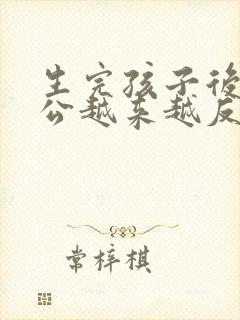 生完孩子後
公越来越反
常梓棋